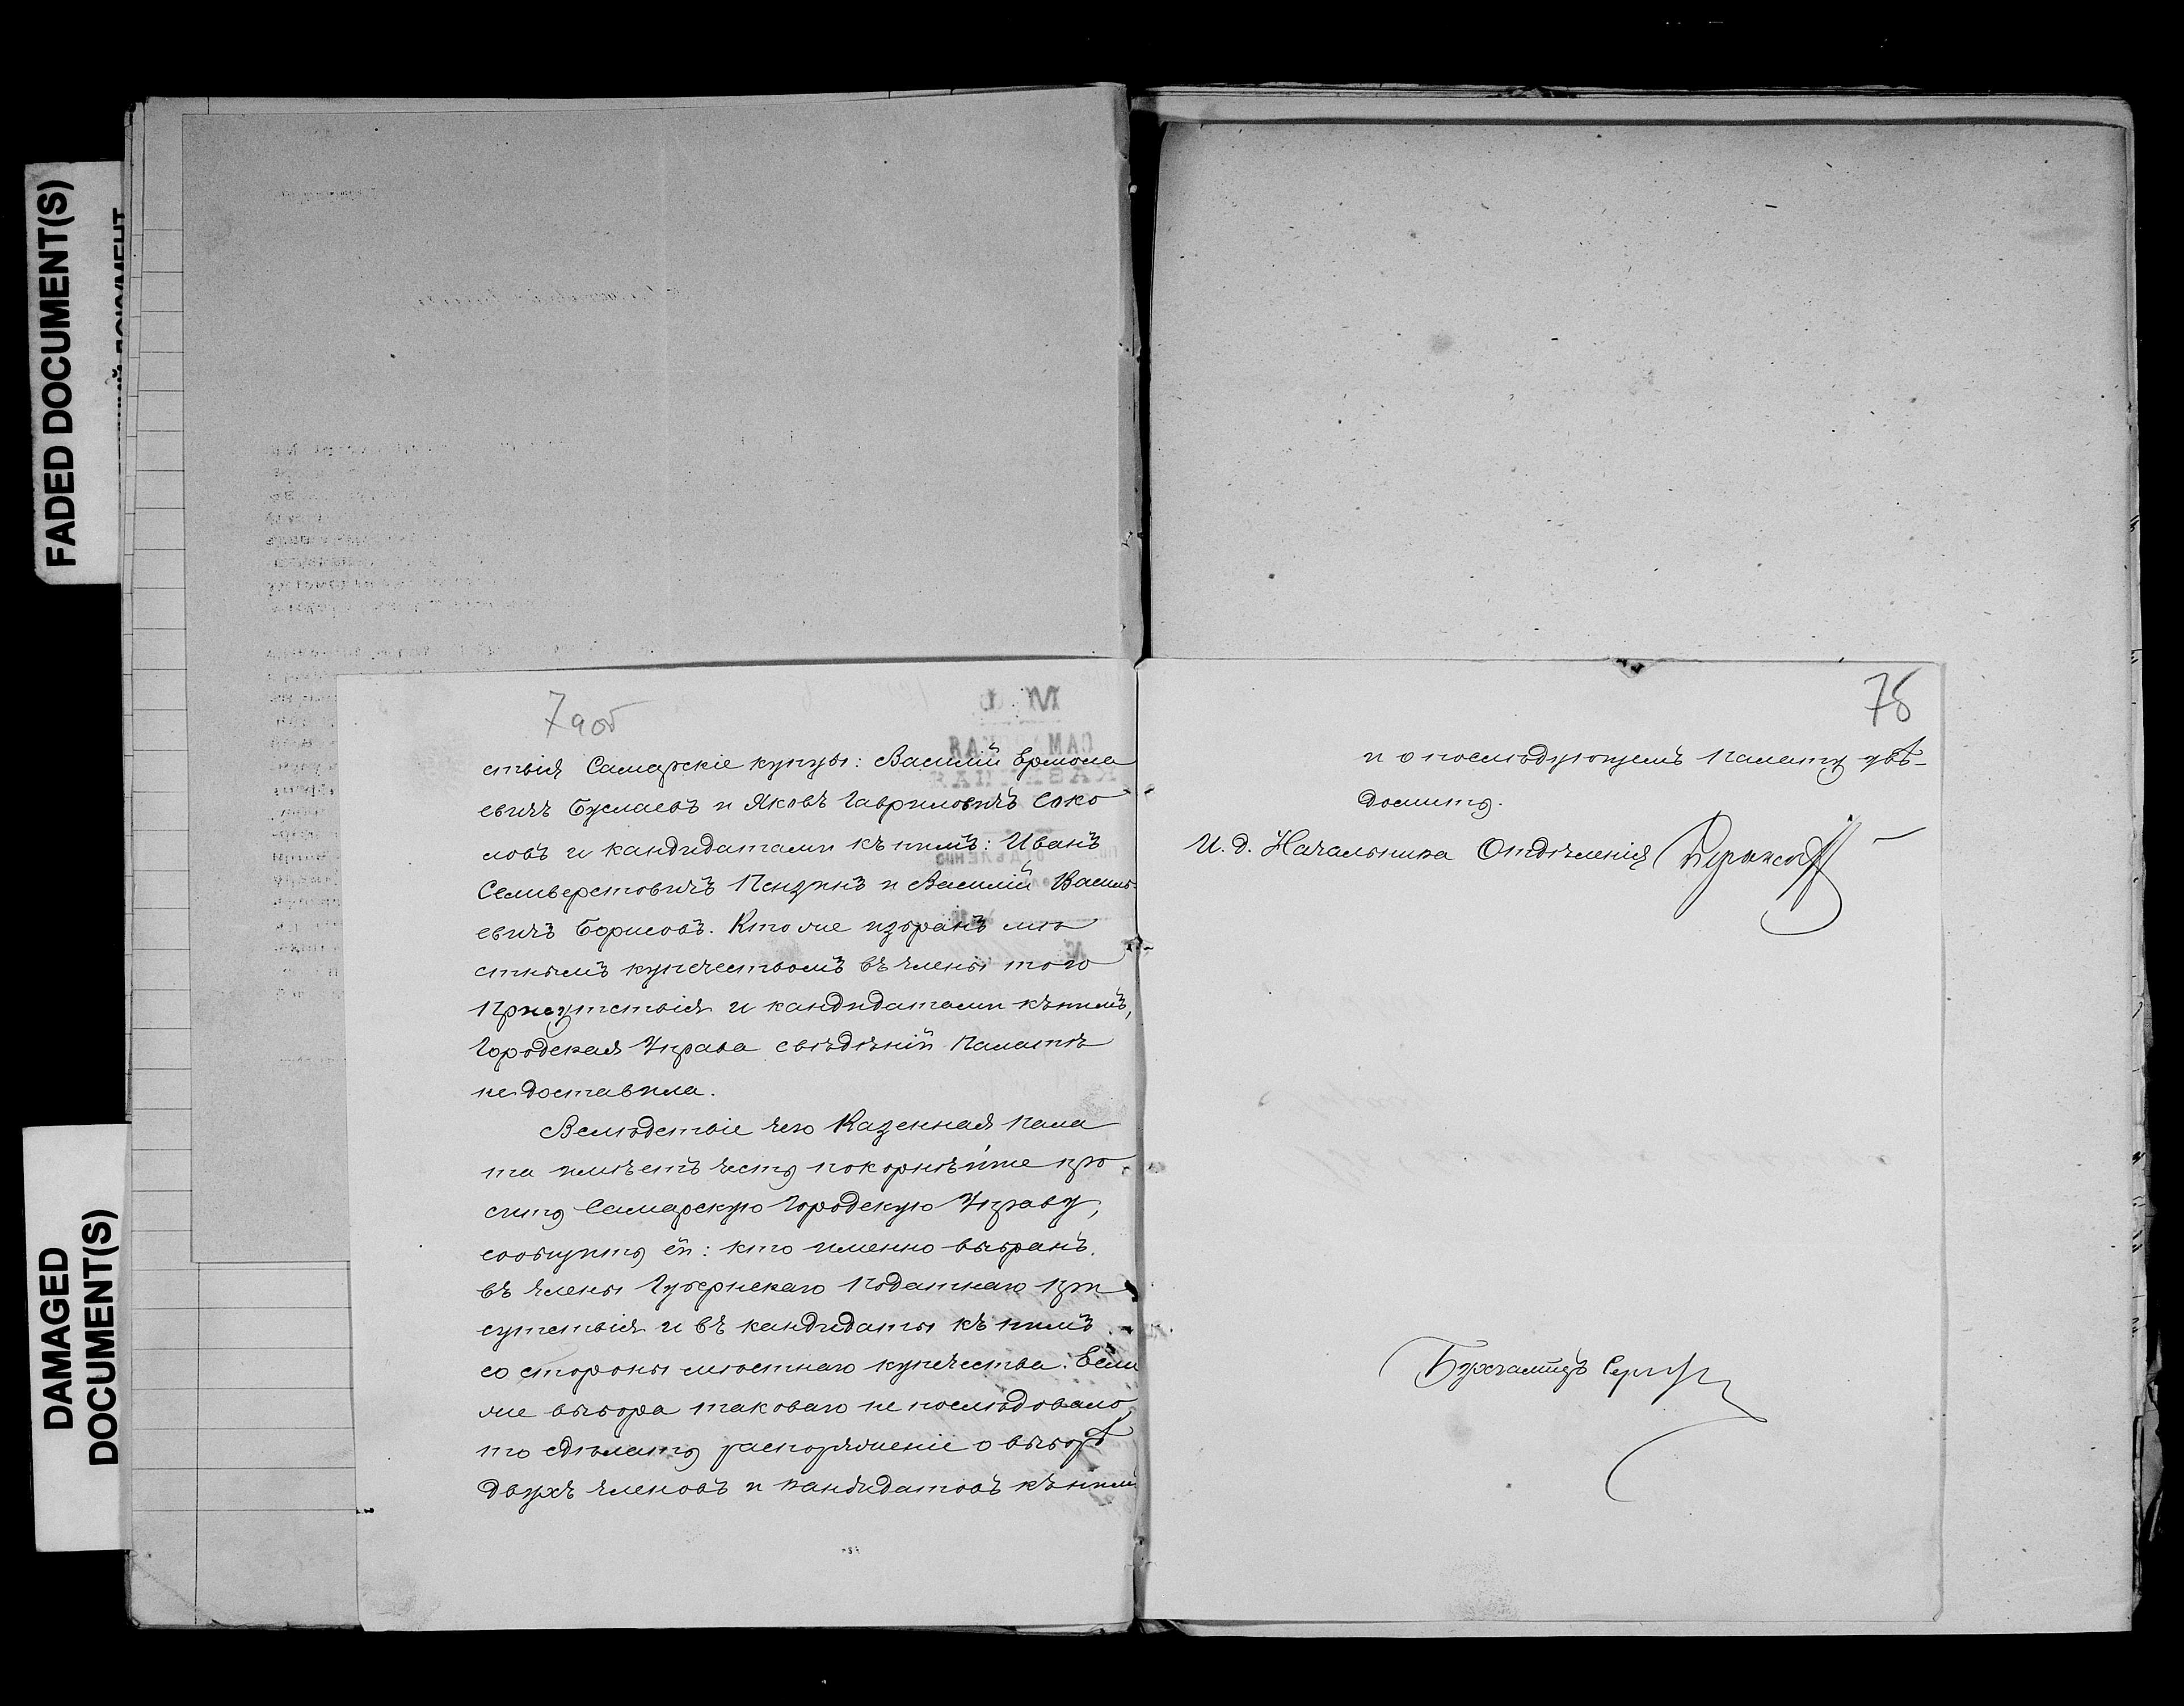 FADED DOCUMENT(S)
DAMAGED
DOCUMENT(S)
7а об
ствія Самарскіе купцы: Василій Ермола
евичъ Буслаевъ и Яковъ Гавриловичъ Соко
ловъ и кандидатами къ нимъ: Иванъ
Селиверстовичъ Пензинъ и Василій Василь
евичъ Борисовъ. Кто же избранъ мѣ
стнымъ купечествомъ въ члены того
Присутствія и кандидатами къ нимъ,
Городская Управа свѣдѣній Палатѣ
не доставила.
Вслѣдствіе чего Казенная Пала
та имѣетъ честь покорнѣйше про
сить Самарскую Городскую Управу,
сообщить ей: кто именно выбранъ
въ члены Губернскаго Податнаго При
сутствія и въ кандидаты къ нимъ
со стороны мѣстнаго купечества. Если
же выбора таковаго не послѣдовало,
то сдѣлать распоряженіе о выборѣ
двухъ членовъ и кандидатовъ къ нимъ
78
и о послѣдующемъ Палату увѣ-
домить.
И. д. Начальника Отдѣленія
Бухгалтеръ